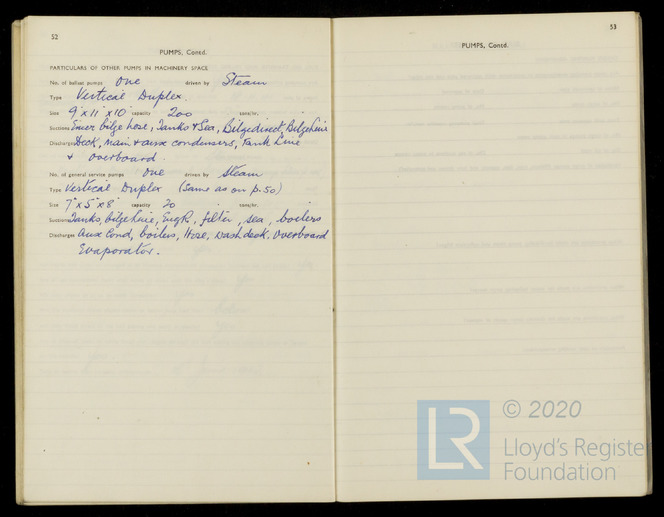 52
PUMPS, Contd.
PARTICULARS OF OTHER PUMPS IN MACHINERY SPACE
No. of ballast pumps One driven by Steam
Type Vertical Duplex.
Size 9" x 11" x 10" capacity 200 tons/hr.
Suctions Emer bilge hose, Tanks & Sea, Bilge direct, Bilge Line
Discharges Deck, main & aux condensers, Tank Line
& overboard.
No. of general service pumps One driven by Steam
Type Vertical Duplex (Same as on p. 50)
Size 7" x 5" x 8" capacity 20 tons/hr.
Suctions Tanks, bilge Line, Eng R, filter, sea, boilers
Discharges Aux Cond, boilers, Hose, Wash deck. Overboard
Evaporator.
53
PUMPS, Contd.
LR
© 2020
Lloyd's Register
Foundation